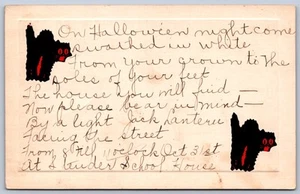 On Halloween night come
swathed in white
From your crown to the
soles of your feet
The house you will find —
Now please bear in mind —
By a light Jack lantern
Facing the street
From 8 till 11 oclock Oct 31st
At School House